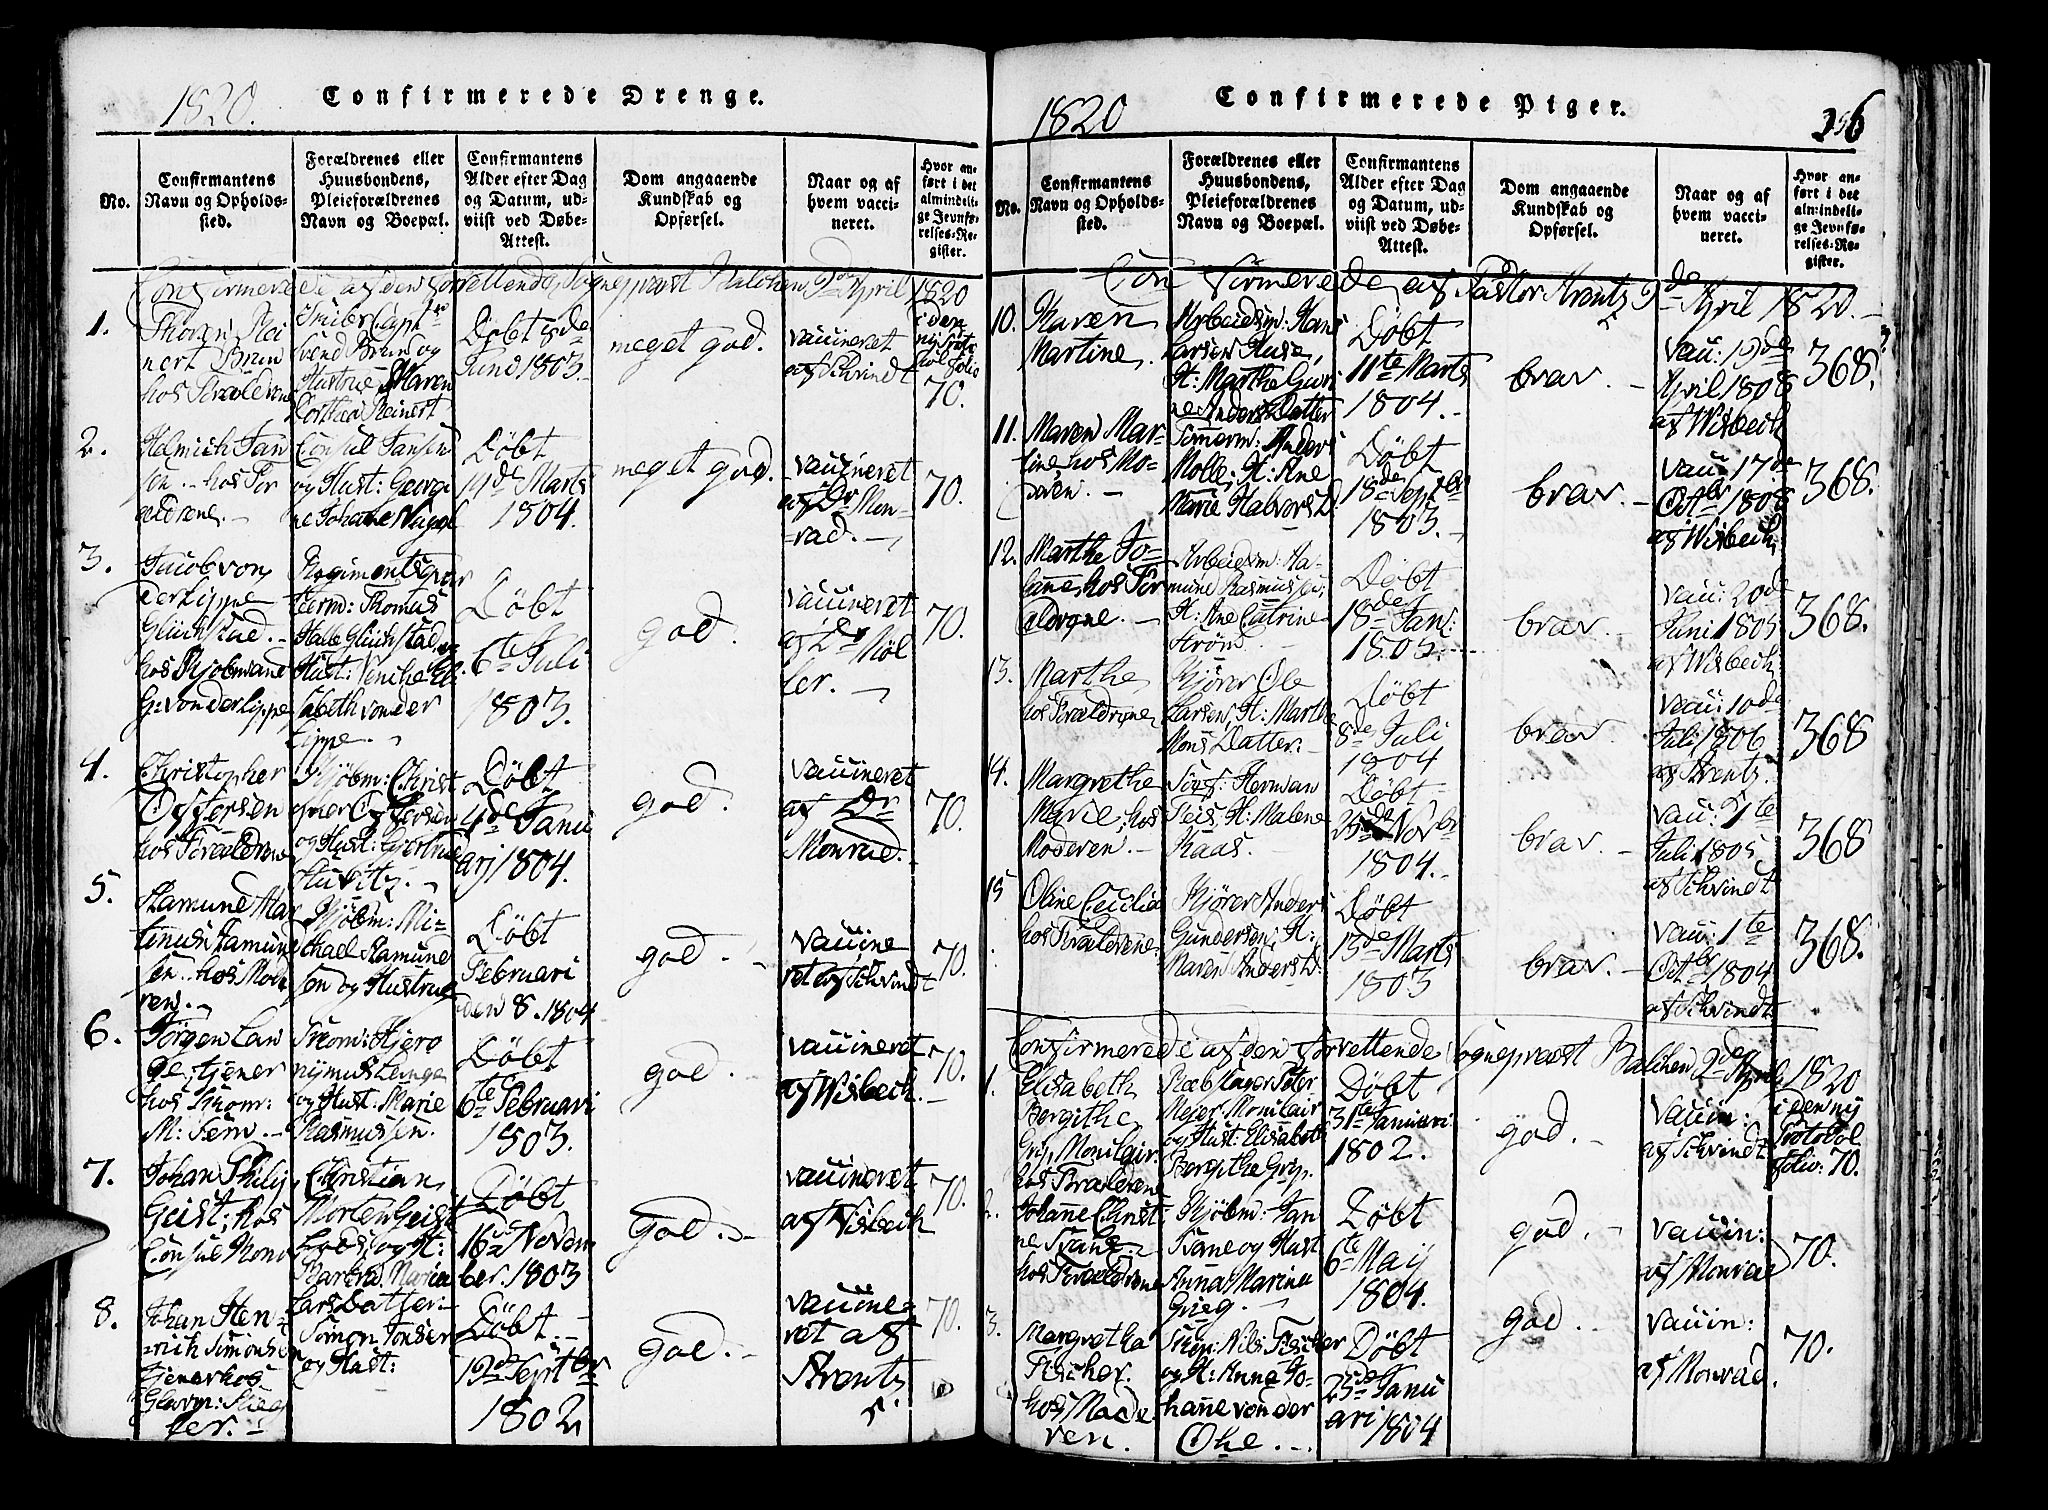 1820.
Confirmerede Drenge.
No.
Confirmantens
Navn og Opholds-
sted.
Forældrenes eller
Huusbondens,
Pleieforældrenes
Navn og Boepæl.
Confirmantens
Alder efter Dag
og Datum, ud-
viist ved Døbe-
Attest.
Dom angaaende
Kundskab og
Opførsel.
Naar og af
hvem vacci-
neret.
Hvor an-
ført i det
almindeli-
ge Jevnfø-
relses-Re-
gister.
Confirmerede af den forrettende Sognepræst Balchen 9de April 1820
1.
hos Forældrene
Svend Brun og
Hustrue Maren
Dorthea Reinert
Døbt 8de
Juni 1803.
meget god.
vaccineret
af Schvindt
i den
ny Proto
kol folio
70.
2.
Helmich Jan
sen. hos For
ældrene.
Consul Jansen
og Hust: Georgi
ne Johane
Døbt
19de Marts
1804.
meget god.
vaccineret
af Dr Mon-
rad.
70.
3.
Jacob von
der Lippe
Glückstad.
hos Kjøbmand
G: von der Lippe
Regiments
Thomas
Halle Glückstad,
Hust: Eli
sabeth von der
Lippe.
Døbt
6te Juli
1803.
god.
vaccineret
af Dr Møl
ler.
70.
4.
Christopher
Offersen
hos Forældrene
Kjøbm: Christ
opher Offersen
og Hust: Gjertrud
Døbt
4de Janu
arj 1804.
god.
vaccineret
af Dr
Monrad.
70.
5.
Ramund Mar
tinus Ramund
sen. hos Mod
ren.
Kjøbm: Mi-
chael Ramund
sen og Hustrue
Døbt
Februari
den 8. 1804
god.
vaccine
ret af Schvindt
70.
6.
Jørgen Lan
ge, tjener
hos
M: Fern.
Hjero
nijmus Lange
og Hust: Marie
Rasmussen.
Døbt
6te Februari
1803.
god.
vaccineret
af Wisbech.
70.
7.
Johan Philip
Geist, hos
Consul
Christian
Morten Geist
og H:
Maria
Lars Datter
Døbt
16de Novem
ber. 1803
god.
vaccineret
af Wisbech
70.
8.
Johan Hen-
rich Simonsen
tjener hos
Glarm:
Simon Jonsen
og Hust:
Døbt.
12de Septbr
1802
god.
vaccine-
ret af
Arentz
70.
1820
Confirmerede Piger.
356
No.
Confirmantens
Navn og Opholds-
sted.
Forældrenes eller
Huusbondens,
Pleieforældrenes
Navn og Boepæl.
Confirmantens
Alder efter Dag
og Datum, ud-
viist ved Døbe-
Attest.
Dom angaaende
Kundskab og
Opførsel.
Naar og af
hvem vacci-
neret.
Hvor an-
ført i det
almindeli-
ge Jevnfø-
relses-Re-
gister.
Confirmerede af Pastor Arentz 9de April 1820.
10.
Karen
Martine.
Arbeidsm: Hans
Larsen Huse,
H: Marthe Guri
ne Anders Datter
Døbt
11te Marts
1804.
brav.
vac: 19de
April 1808
af Wisbech
368.
11.
Maren Mar-
tine, hos Mo-
deren.
Tømerm: Anders
Molle, H: Ane
Marie Halvors D.
Døbt
18de Septbr
1803.
brav.
vac: 17de
Octbr 1808
af Wisbech
368.
12.
Marthe Jo-
hane, hos For
ældrene.
Arbeidsm: Aa-
mund Rasmussen,
H: Ane Catrine
Strøm.
Døbt
18de Jan:
1805.
brav.
vac: 20de
Juni 1805
af Wisbech.
368.
13.
Marthe
hos Forældrene
Kjører Ole
Larsen, H: Marthe
Mons Datter.
Døbt
8de Juli
1804
brav.
vac: 10de
Juli 1806
af Arentz.
368
14.
Margrethe
Marie, hos
Moderen.
Herman
H: Malene
Kaas.
Døbt
25de Novbr
1804.
brav.
vac: 1te
Juli 1805
af Schvindt
368
15
Oline Cecilia
hos Forældrene.
Kjører Anders
Gundersen, H:
Maren Anders D.
Døbt
13de Marts
1803
brav.
vac: 1te
Octbr 1804
af Schvindt
368.
Confirmerede af den forrettende Sognepræst Balchen 9de April 1820
1.
Elisabeth
Bergithe
Grip Monclair.
hos Forældrene
Rebslager Peter
Mejer Monclair
og Hust: Elisabeth
Bergithe Grip.
Døbt
31te Januari
1802.
god.
vaccin:
af Schvindt
i den ny
Protokol
folio. 70.
2.
Johane Christ
ne Svane.
hos Forældrene
Kjøbm: Jan
Svane og Hust
Anna Marina
Grieg.
Døbt
6te Maij
1804.
god.
vaccin:
af Monrad
70.
3.
Margretha
Fischer.
hos Mode
ren.
Skip: Nils Fischer
og H: Anna Jo-
hanne von der
Ohe.
Døbt
25de Janu
ari 1804
god.
vaccin:
af Monrad.
70.